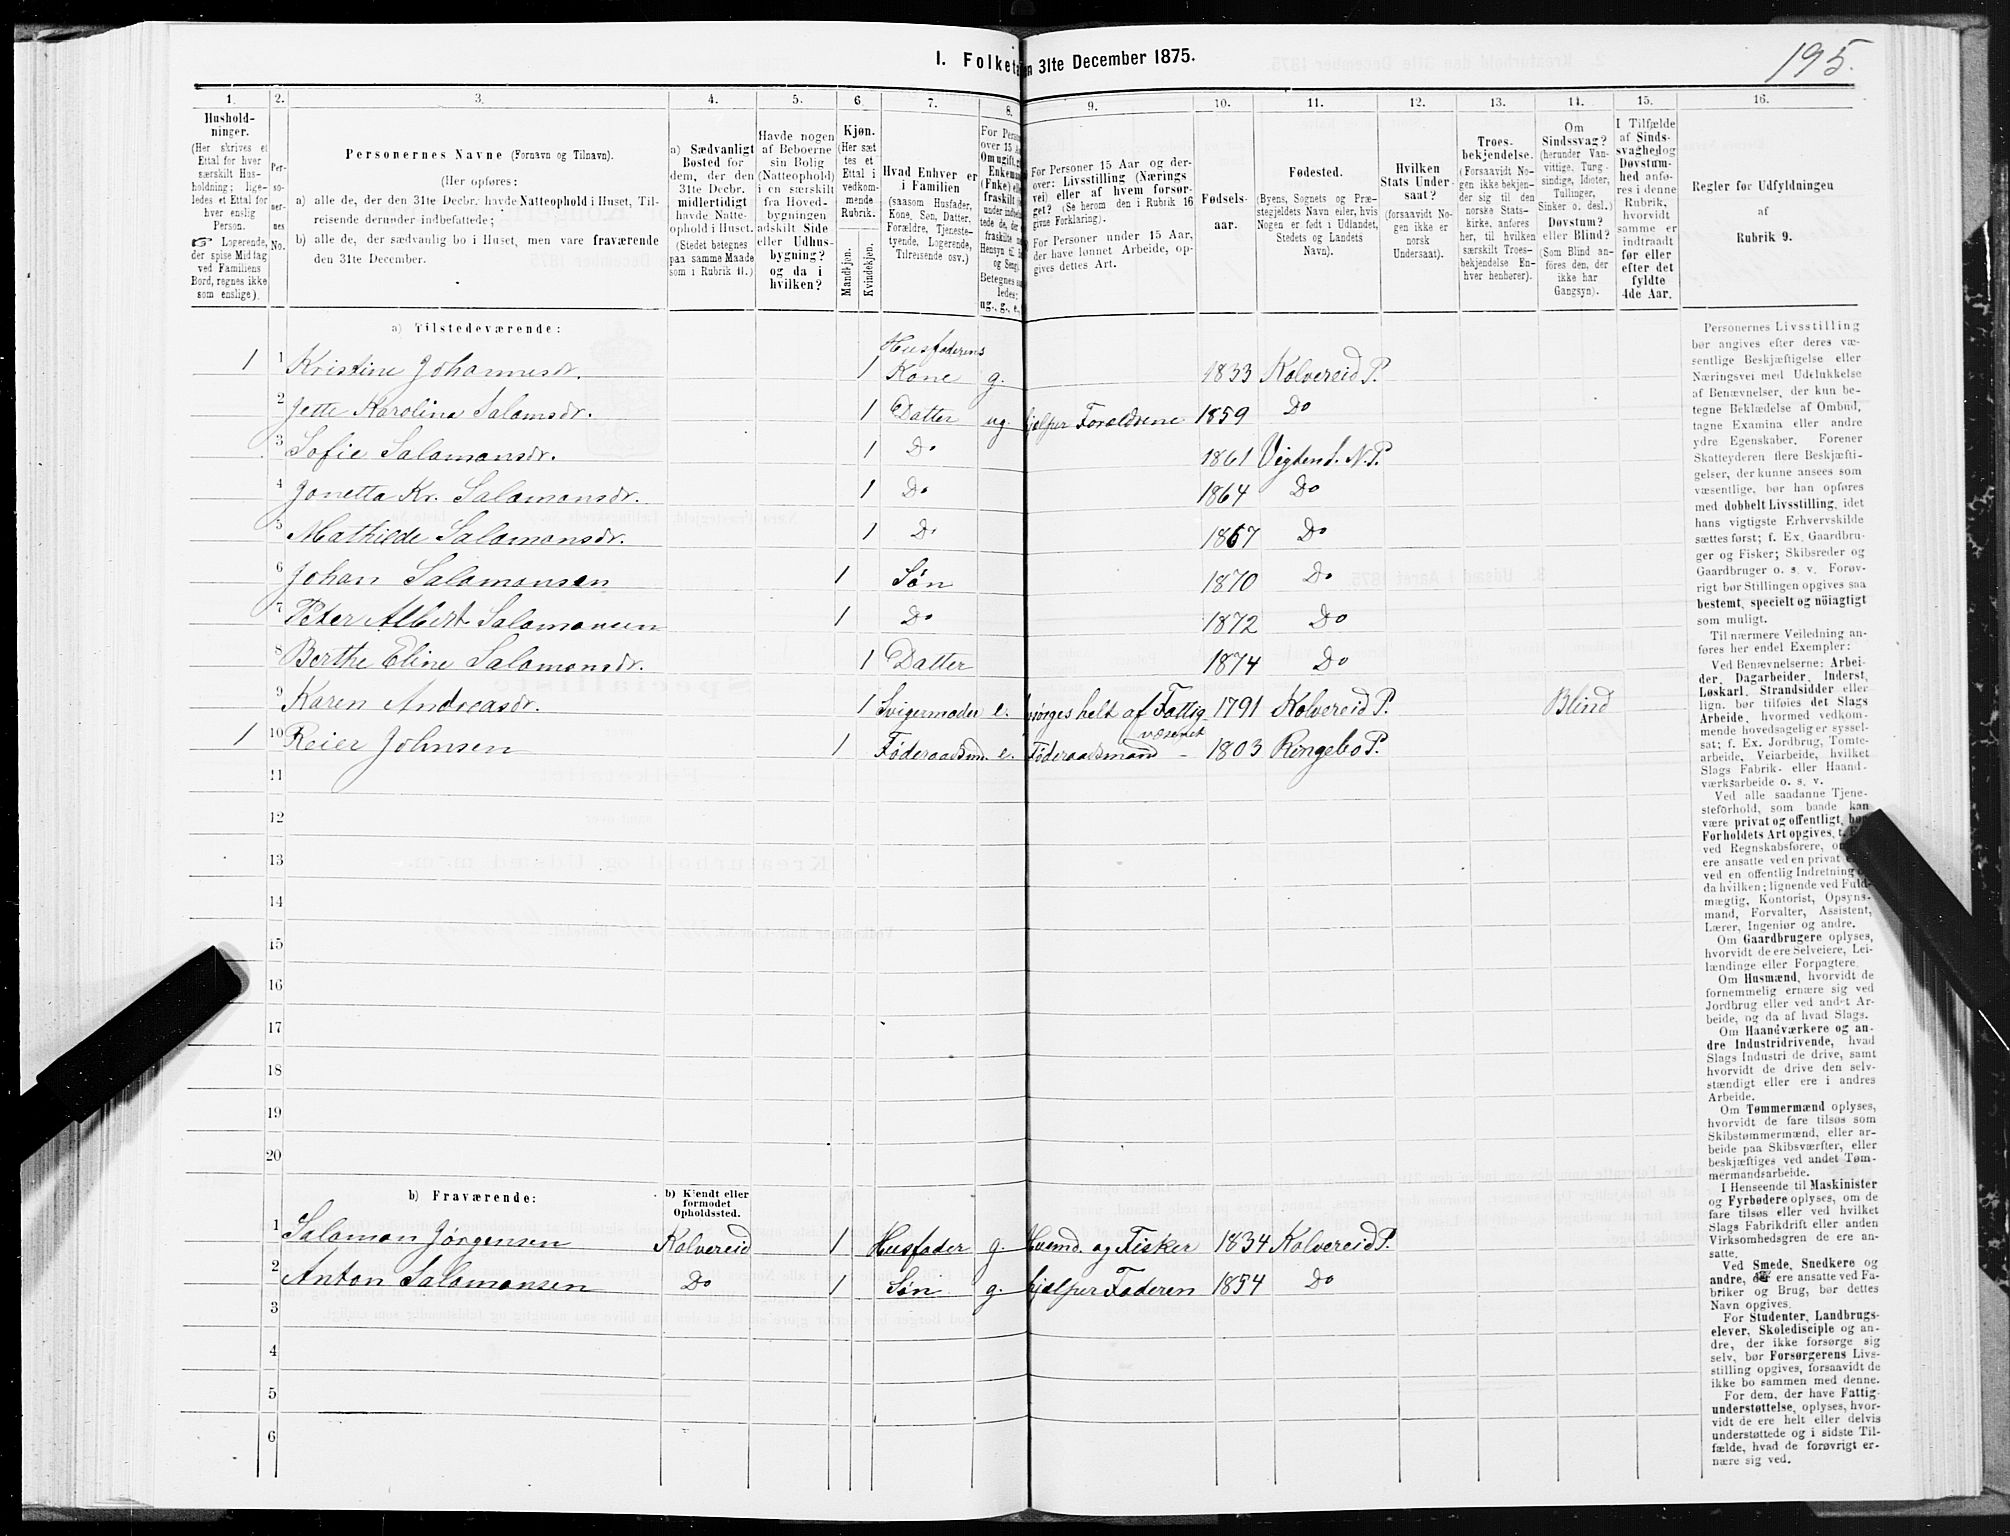 I. Folketa
n 31te December 1875.
195.
1.
2.
3.
4.
5.
6.
7.
8.
9.
10.
11.
12.
13.
14.
15.
16.
Hushold-
ninger.
(Her skrives et
Ettal for hver
særskilt Hus-
holdning; lige-
ledes et Ettal for
hver enslig
Person.
☞ Logerende,
der spise Middag
ved Familiens
Bord, regnes ikke
som enslige).
Per-
so-
ner-
nes
No.
Personernes Navne (Fornavn og Tilnavn).
(Her opføres:
a) alle de, der den 31te Decbr. havde Natteophold i Huset, Til-
reisende derunder indbefattede;
b) alle de, der sædvanlig bo i Huset, men vare fraværende
den 31te December.
a) Sædvanligt
Bosted for
dem, der den
31te Decbr.
midlertidigt
havde Natte-
ophold i Huset.
(Stedet betegnes
paa samme Maade
som i Rubrik 11.)
Havde nogen
af Beboerne
sin Bolig
(Natteophold)
i en særskilt
fra Hoved-
bygningen
adskilt Side
eller Udhus-
bygning?
og da i
hvilken?
Kjøn.
(Her sæt
tes et
Ettal i
vedkom-
mende
Rubrik.
Mandkjøn.
Kvindekjøn.
Hvad Enhver er
i Familien
(saasom Husfader,
Kone, Søn, Datter,
Forældre, Tjeneste-
tyende, Logerende,
Tilreisende osv.)
For Perso
over 15 A
Om ugift, g
Enkeman
(Enke) el
fraskilt
under indbe
tede de, de
fraskilte
Hensyn til
og Seng).
Betegnes s
ledes:
ug., g., e.,
For Personer 15 Aar og der-
over: Livsstilling (Nærings
vei) eller af hvem forsør-
get? (Se herom den i Rubrik 16
givne Forklaring).
For Personer under 15 Aar,
der have lønnet Arbeide, op-
gives dettes Art.
Fødsels-
aar.
Fødested.
(Byens, Sognets og Præ-
stegjeldets Navn eller, hvis
Nogen er født i Udlandet,
Stedets og Landets
Navn).
Hvilken
Stats Under-
saat?
(forsaavidt No-
gen ikke er
norsk
Undersaat).
Troes-
bekjendelse.
(Forsaavidt No-
gen ikke bekjen-
der sig til den
norske Stats-
kirke, anføres
her, til hvilken
særskilt Troes-
bekjendelse En-
hver henhører).
Om
Sindssvag?
(herunder Van-
vittige, Tung-
sindige, Idioter,
Tullinger,
Sinker o. desl.)
Døvstum?
eller Blind?
(Som Blind an-
føres den, der
ikke har
Gangsyn).
I Tilfælde
af Sinds-
svaghed og
Døvstum-
hed anfø-
res i denne
Rubrik,
hvorvidt
samme er
indtraadt
før eller
efter det
fyldte
4de Aar.
Regler før Udfyldningen
af
Rubrik 9.
a) Tilstedeværende:
1 1 Kristine Johannesdr. 1 Husfaderens Kone g. 1833 Kolvereid P.
2 Jette Karolina Salamsdr. 1 Datter ug. hjælper Forældrene 1859 Do
3 Sofie Salamonsdr. 1 Do 1861 N.P.
4 Jonetta Kr. Salamonsdr. 1 Do 1864 Do
5 Mathilde Salamonsdr. 1 Do 1867 Do
6 Johan Salamonsen 1 Søn 1870 Do
7 Peter Albert Salamonsen 1 Do 1872 Do
8 Berthe Eline Salamonsdr. 1 Datter 1874 Do
9 Karen Andreasdr. 1 Svigermoder e. helt af Fattigvæsenet 1791 Kolvereid P. Blind
1 10 Reier Johnsen 1 Føderaadsm. e. Føderaadsmand - 1803 Ringebo P.
11
12
13
14
15
16
17
18
19
20
b) Fraværende:
b) Kjendt eller
formodet
Opholdssted.
1 Salamon Jørgensen Kolvereid 1 Husfader g. Husmd. og Fisker 1834 Kolvereid P.
2 Anton Salamonsen Do 1 Søn g. hjælper Faderen 1854 Do
3
4
5
6
Personernes Livsstilling
bør angives efter deres væ-
sentlige Beskjæftigelse eller
Næringsvei med Udelukkelse
af Benævnelser, der kun be-
tegne Beklædelse af Ombud,
tagne Examina eller andre
ydre Egenskaber. Forener
Skatteyderen flere Beskjæfti-
gelser, der kunne ansees som
væsentlige, bør han opføres
med dobbelt Livsstilling, idet
hans vigtigste Erhvervskilde
sættes først; f. Ex. Gaardbru-
ger og Fisker; Skibsreder og
Gaardbruger o. s. v. Forøv-
rigt bør Stillingen opgives saa
bestemt, specielt og nöiagtigt
som muligt.
Til nærmere Veiledning an-
føres her endel Exempler:
Ved Benævnelserne: Arbei-
der, Dagarbeider, Inderst,
Løskarl, Strandsidder eller
lign. bør tilføies det Slags
Arbeide, hvormed vedkom-
mende hovedsagelig er syssel-
sat; f. Ex. Jordbrug, Tomte-
arbeide, Veiarbeide, hvilket
Slags Fabrik- eller Haand-
værksarbeide o. s. v.
Ved alle saadanne Tjene-
steforhold, som baade kan
være privat og offentligt, bør
Forholdets Art opgives, t.
ved Regnskabsførere, o
ere ansatte ved en privat
ved en offentlig Indretning
da hvilken; lignende ved Fuld-
mægtig, Kontorist, Opsyns-
mand, Forvalter, Assistent,
Lærer, Ingeniør og andre.
Om Gaardbrugere oplyses,
hvorvidt de ere Selveiere, Lei-
lændinge eller Forpagtere.
Om Husmænd, hvorvidt de
fornemmelig ernære sig ved
Jordbrug eller ved andet Ar-
beide, og da af hvad Slags.
Om Haandværkere og an-
dre Industridrivende, hvad
Slags Industri de drive, samt
hvorvidt de drive den selv-
stændigt eller ere i andres
Arbeide.
Om Tømmermænd oplyses,
hvorvidt de fare tilsøs som
Skibstømmermænd, eller ar-
beide paa Skibsværfter, eller
beskjæftiges ved andet Tøm-
mermandsarbeide.
I Henseende til Maskinister
og Fyrbødere oplyses, om de
fare tilsøs eller ved hvilket
Slags Fabrikdrift eller anden
Virksomhedsgren de ere an-
satte.
Ved Smede, Snedkere og
andre, ere ansatte ved Fa-
briker og Brug, bør dettes
Navn opgives.
For Studenter, Landbrugs-
elever, Skoledisciple og an-
dre, der ikke forsørge sig
selv, bør Forsørgerens Livs-
stilling opgives, forsaavidt de
ikke bo sammen med denne.
For dem, der have Fattig-
understøttelse, oplyses, hvor-
vidt de ere helt eller delvis
understøttede og i sidste Til-
fælde, hvad de forøvrigt er-
nære sig ved.